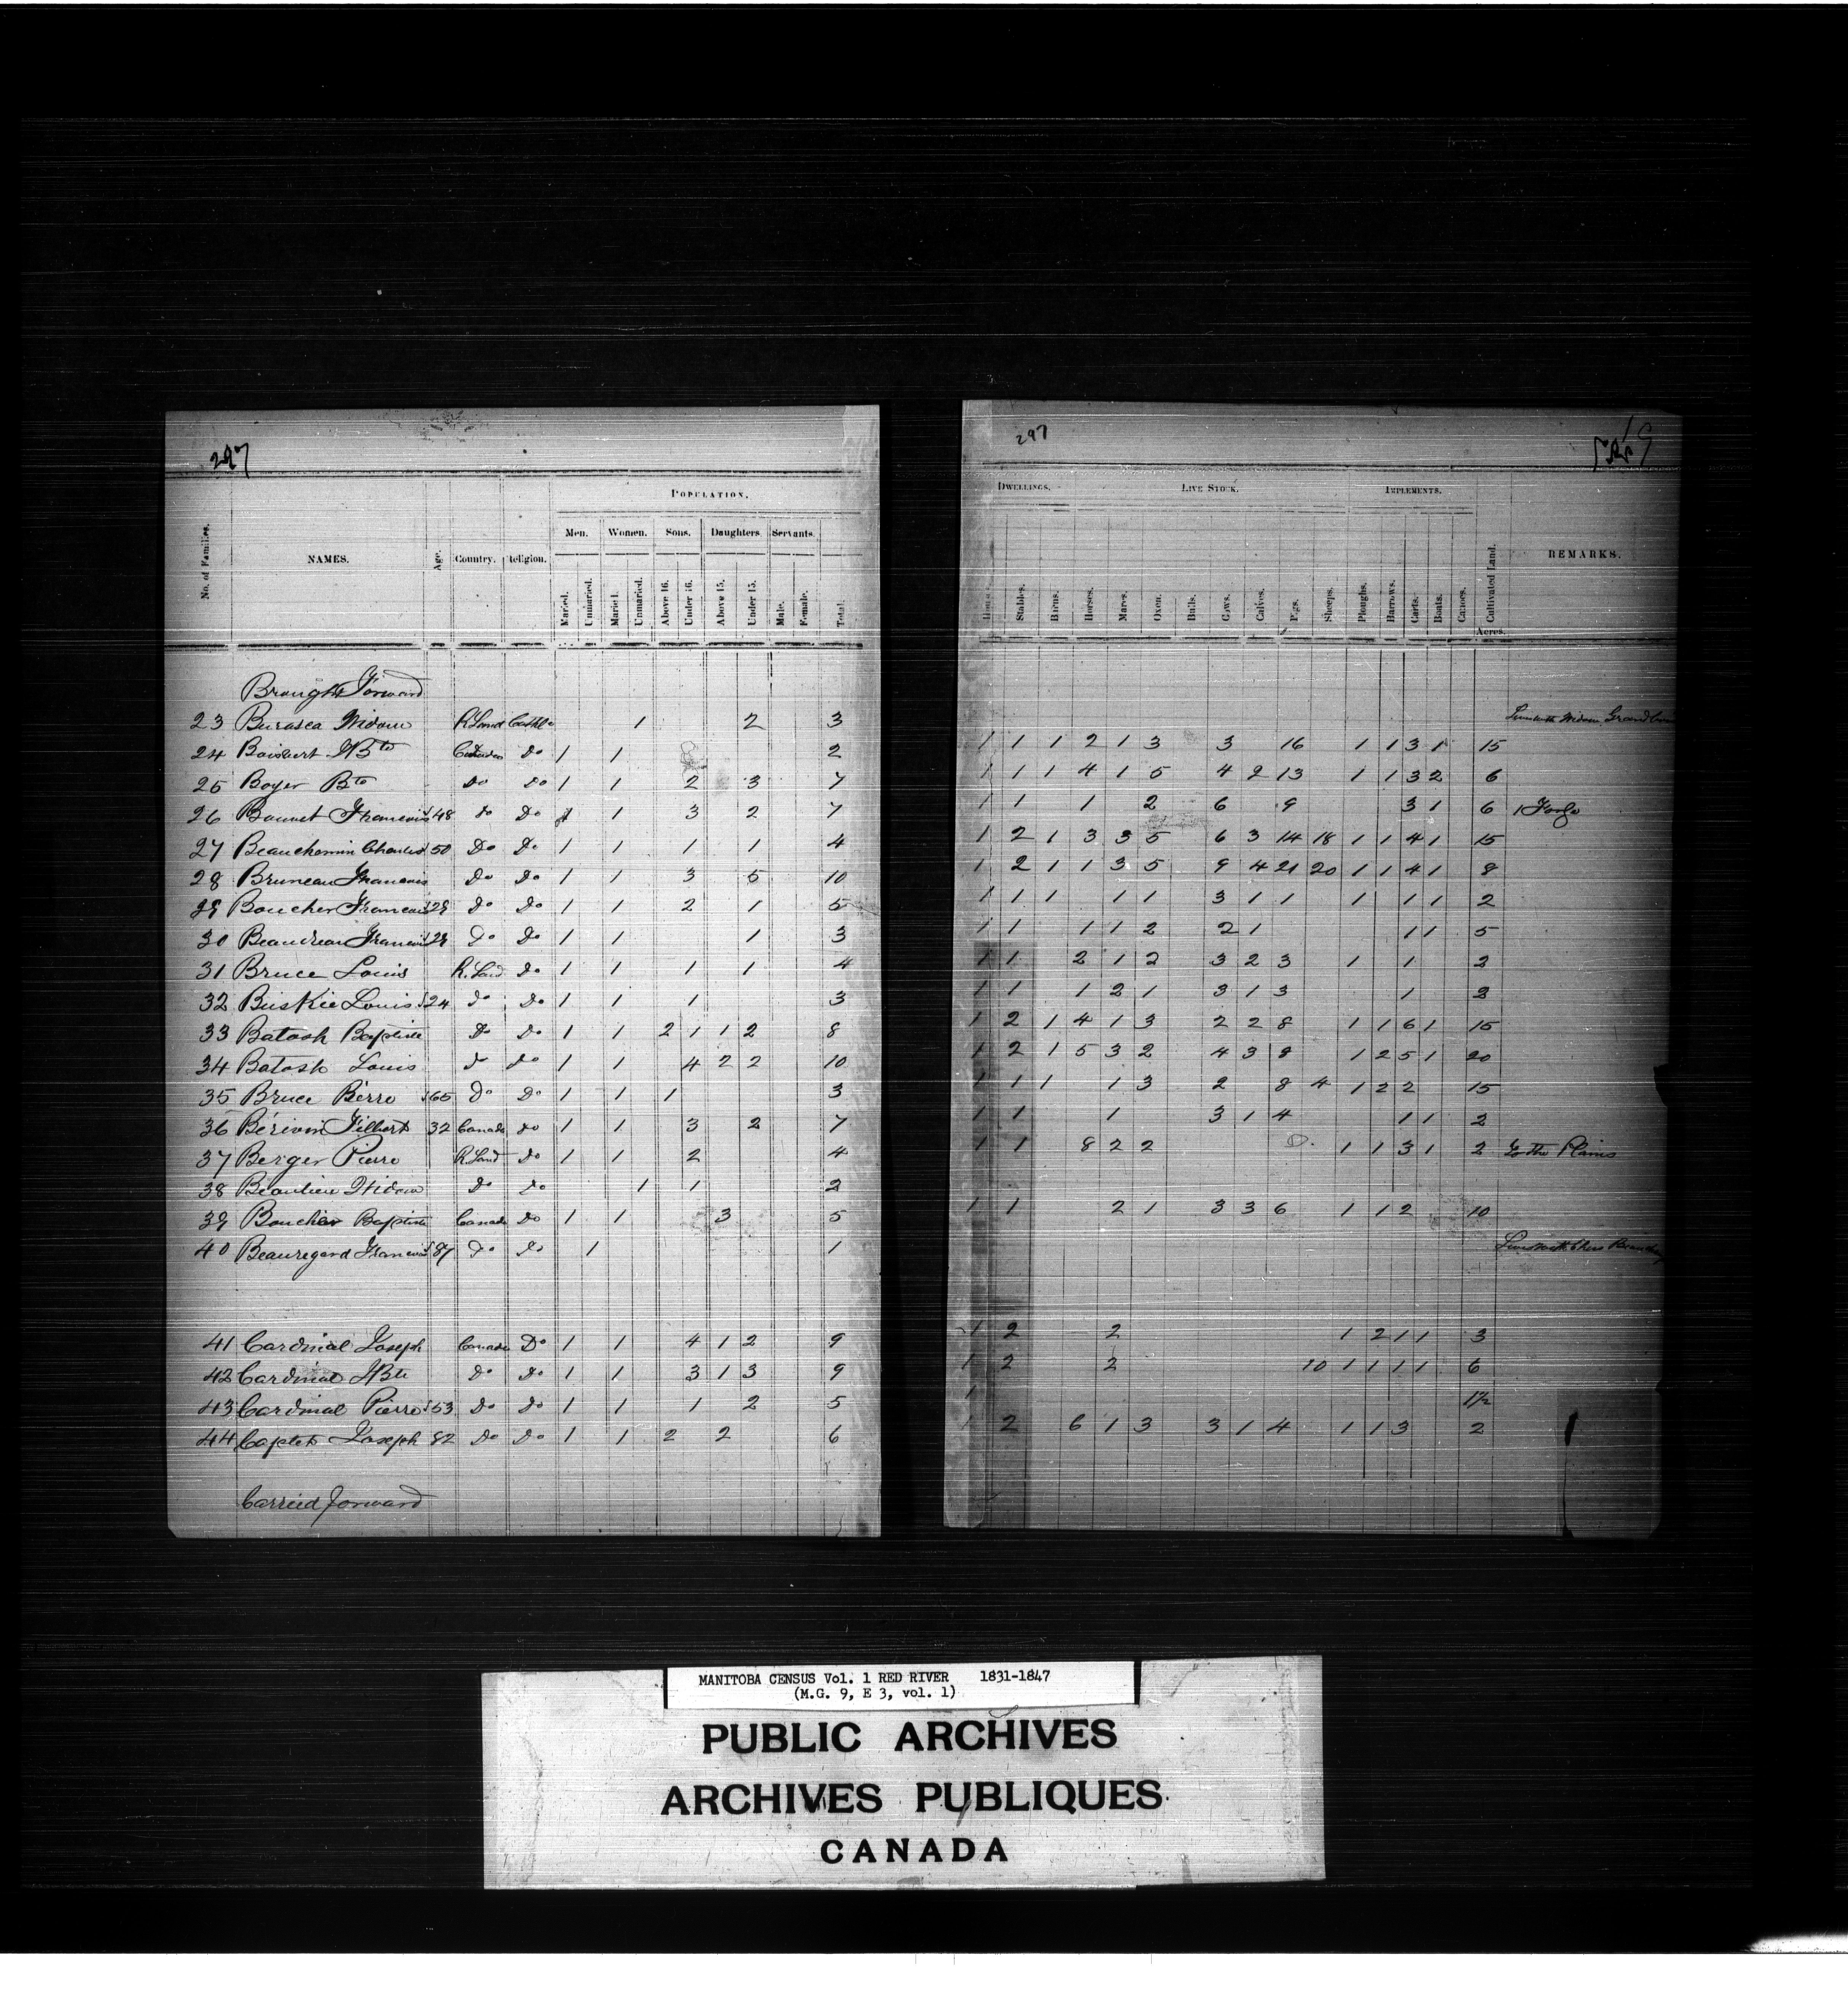 297
POPULATION.
No. of Families.
NAMES.
Age.
Country.
Religion.
Men.
Women.
Sons.
Daughters.
Servants.
Married.
Unmarried.
Married.
Unmarried.
Above 16.
Under 16.
Above 15.
Under 15.
Male.
Female.
Total.
Brought Forward
23 Burasca Widow R. Land Catholic 1 2 3
24 Boisvert JBte Canada Do 1 1 2
25 Boyer Bte Do Do 1 1 2 3 7
26 Bouvet Francois 48 Do Do 1 1 3 2 7
27 Beauchemin Charles 50 Do Do 1 1 1 1 4
28 Bruneau Francois Do Do 1 1 3 5 10
29 Boucher Francois 29 Do Do 1 1 2 1 5
30 Beaudreau Francois 29 Do Do 1 1 1 3
31 Bruce Louis R. Land Do 1 1 1 1 4
32 Buskie Louis 24 Do Do 1 1 1 3
33 Batosh Baptiste Do Do 1 1 2 1 1 2 8
34 Batosh Louis Do Do 1 1 4 2 2 10
35 Bruce Pierre 65 Do Do 1 1 1 3
36 Filbert 32 Canada Do 1 1 3 2 7
37 Berger Pierre R. Land Do 1 1 2 4
38 Beaulieu Widow Do Do 1 1 2
39 Boucher Baptiste Canada Do 1 1 3 5
40 Beauregard Francois 87 Do Do 1 1
41 Cardinal Joseph Canada Do 1 1 4 1 2 9
42 Cardinal JBte Do Do 1 1 3 1 3 9
43 Cardinal Pierre 53 Do Do 1 1 1 2 5
44 Joseph 82 Do Do 1 1 2 2 6
Carried forward
297
DWELLINGS.
LIVE STOCK.
IMPLEMENTS.
Houses.
Stables.
Barns.
Horses.
Mares.
Oxen.
Bulls.
Cows.
Calves.
Pigs.
Sheeps.
Ploughs.
Harrows.
Carts.
Boats.
Canoes.
Cultivated Land.
Acres.
REMARKS.
Widow
1 1 1 2 1 3 3 16 1 1 3 1 15
1 1 1 4 1 5 4 2 13 1 1 3 2 6
1 1 1 2 6 9 3 1 6 1 Forge
1 2 1 3 3 5 6 3 14 18 1 1 4 1 15
1 2 1 1 3 5 9 4 21 20 1 1 4 1 8
1 1 1 1 1 3 1 1 1 1 1 2
1 1 1 1 2 2 1 1 1 5
1 1 2 1 2 3 2 3 1 1 2
1 1 1 2 1 3 1 3 1 2
1 2 1 4 1 3 2 2 8 1 1 6 1 15
1 2 1 5 3 2 4 3 8 1 2 5 1 20
1 1 1 1 3 2 8 4 1 2 2 15
1 1 1 3 1 4 1 1 2
1 1 8 2 2 1 1 3 1 2 To the Plains
1 1 2 1 3 3 6 1 1 2 10
1 2 2 1 2 1 1 3
1 2 2 10 1 1 1 1 6
1 1½
1 2 6 1 3 3 1 4 1 1 3 2
MANITOBA CENSUS Vol. 1 RED RIVER 1831-1847
(M.G. 9, E 3, vol. 1)
PUBLIC ARCHIVES
ARCHIVES PUBLIQUES
CANADA